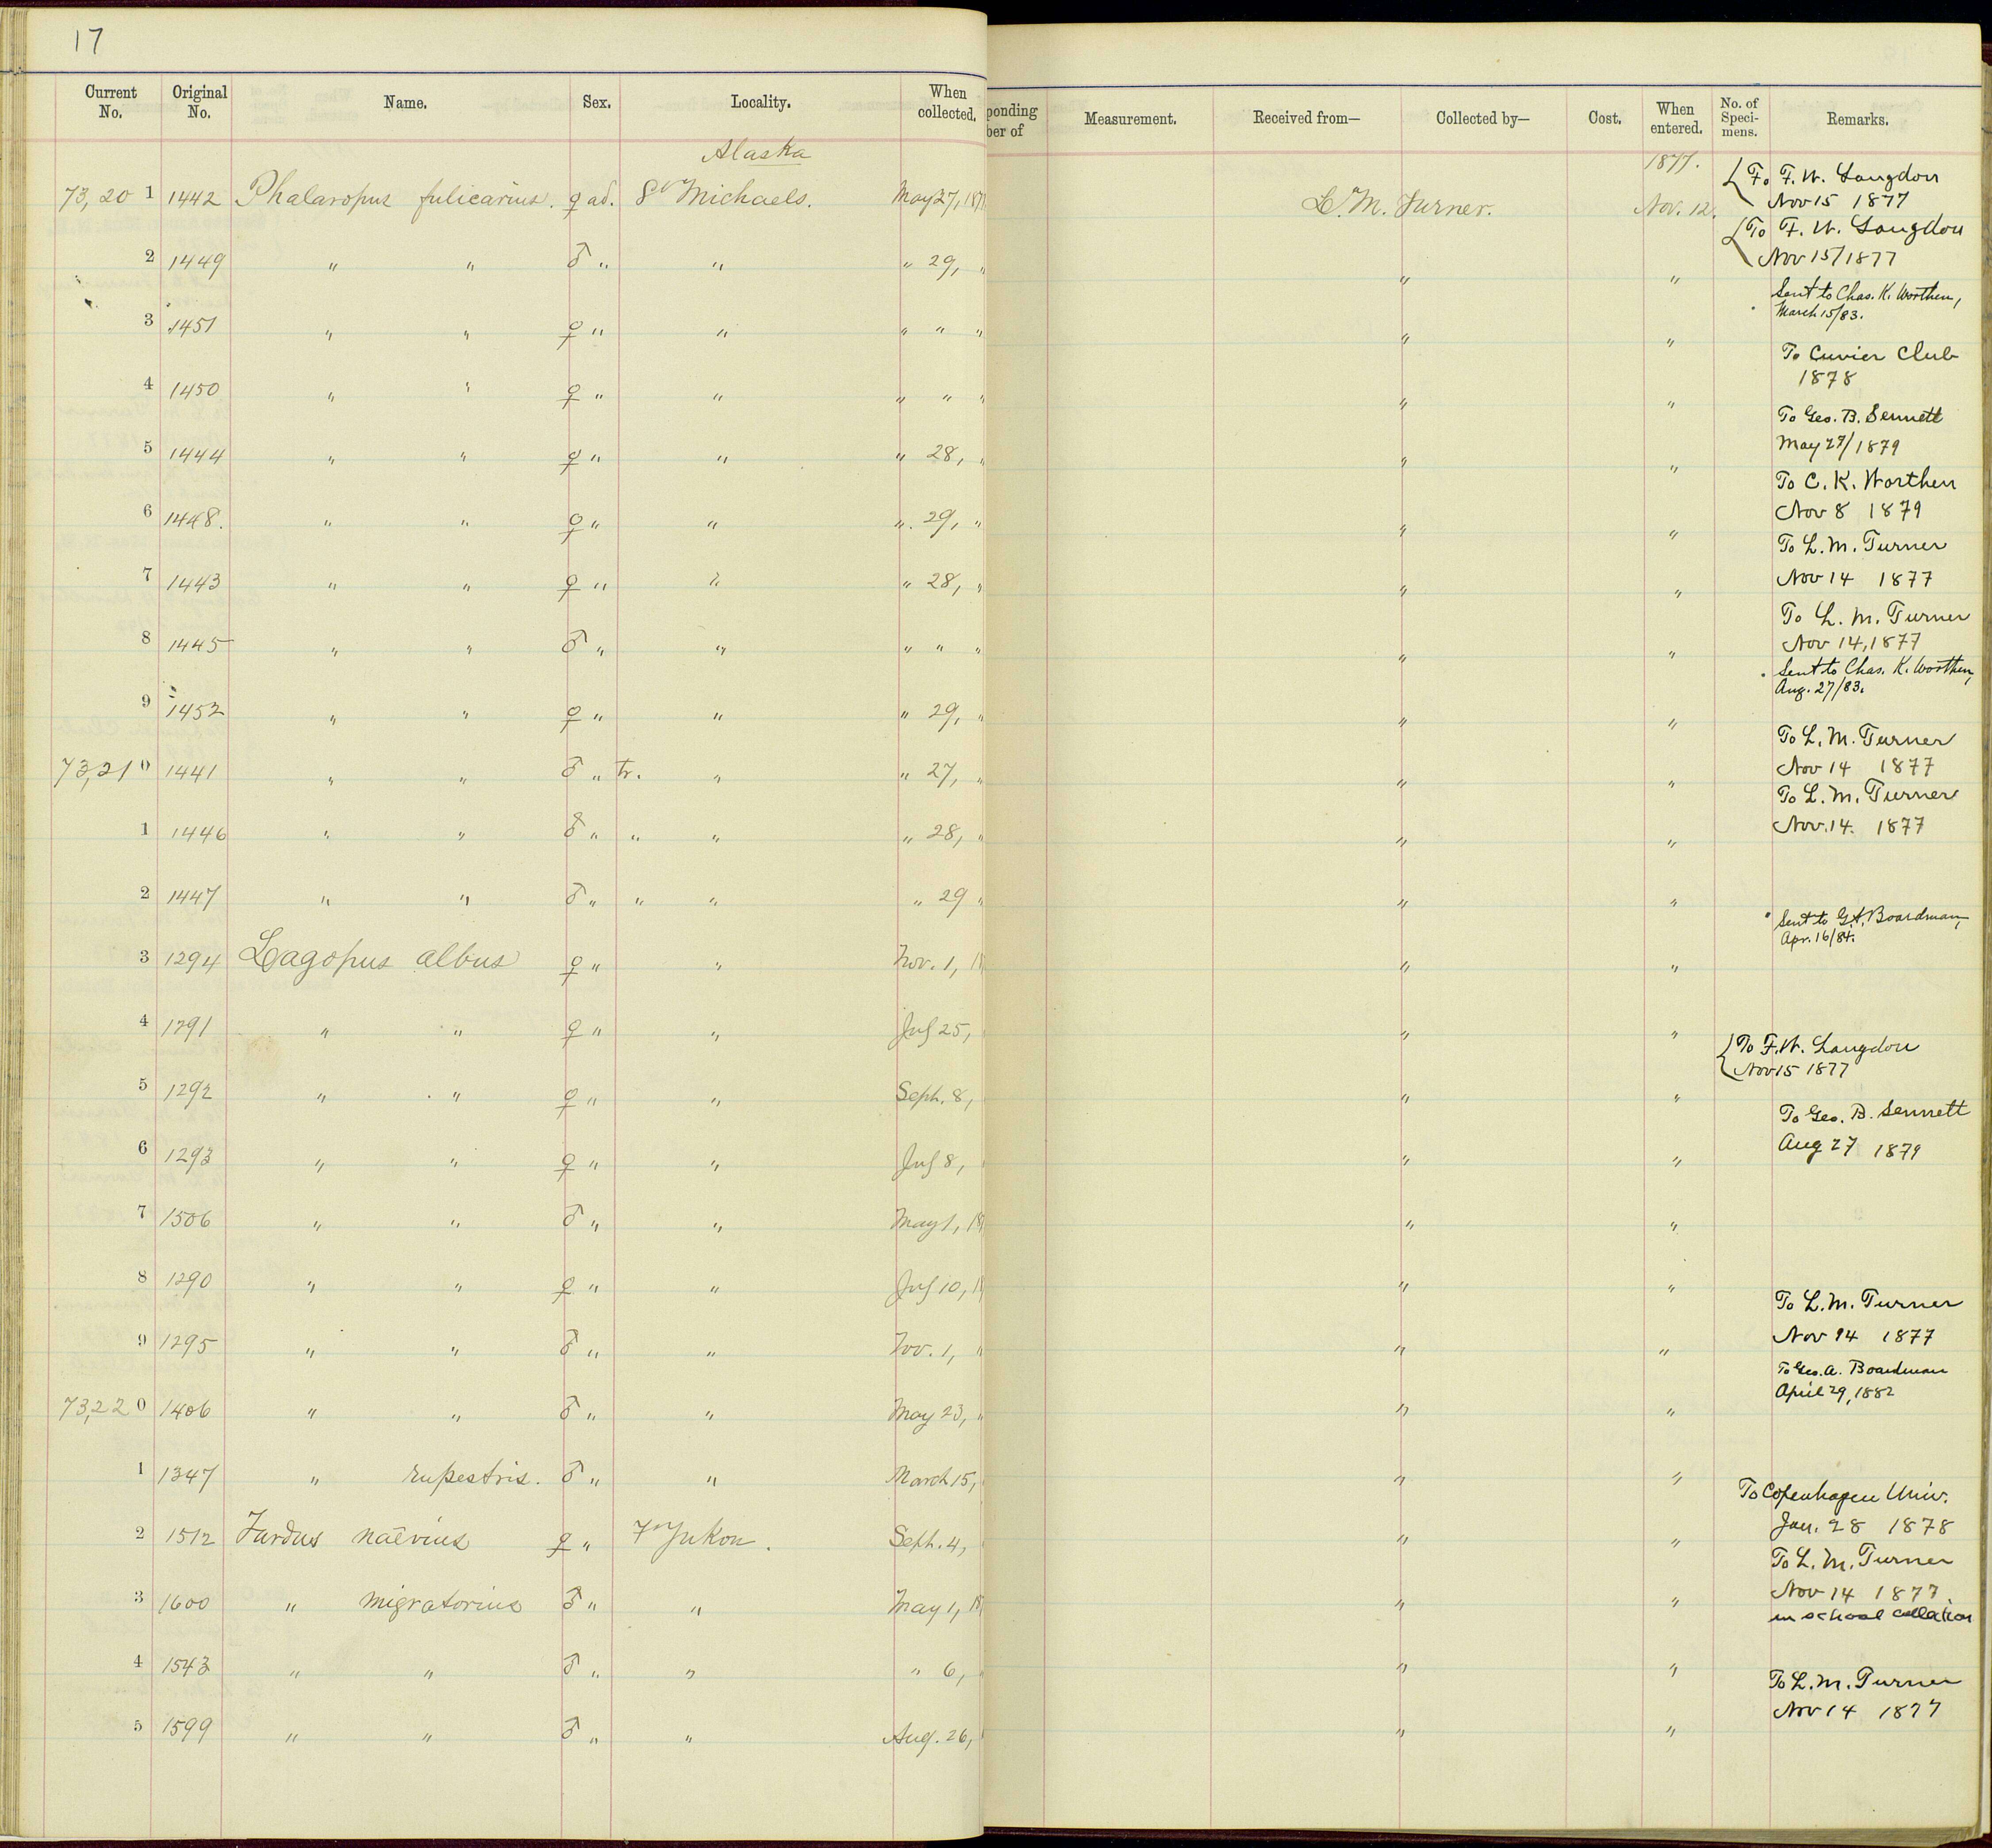 17
Current No. Original No. Name. Sex. Locality. When collected. ponding ber of Measurement. Received from— Collected by— Cost. When entered. No. of Speci-mens. Remarks.
Alaska 1877.
73,20 1 1442 Phalaropus fulicarius. ♀ ad. St Michaels. May 27, 187 L. M. Turner. Nov. 12. To F. W. Langdon Nov 15 1877
2 1449 " " ♂ " " " 29, " " " To F. W. Langdon Nov 15/1877
3 1451 " " ♀ " " " " " " " Sent to Chas. K. Worthen, March 15/83.
4 1450 " " ♀ " " " " " " " To Cuvier Club 1878
5 1444 " " ♀ " " " 28, " " " To Geo. B. Sennett May 27/1879
6 1448. " " ♀ " " " 29, " " " To C. K. Worthen Nov 8 1879
7 1443 " " ♀ " " " 28, " " " To L. M. Turner Nov 14 1877
8 1445 " " ♂ " " " " " " " To L. M. Turner Nov 14, 1877
9 1452 " " ♀ " " " 29, " " " Sent to Chas. K. Worthen, Aug. 27/83.
73,21 0 1441 " " ♂ " tr. " " 27, " " " To L. M. Turner Nov 14 1877
1 1446 " " ♂ " " " " 28, " " " To L. M. Turner Nov. 14. 1877
2 1447 " " ♂ " " " " 29 " " "
3 1294 Lagopus albus ♀ " " Nov. 1, 1 " " Sent to G. A. Boardman, Apr. 16/84.
4 1291 " " ♀ " " 25, " "
5 1292 " " ♀ " " Sept. 8, " " To F. W. Langdon Nov 15 1877
6 1293 " " ♀ " " 8, " " To Geo. B. Sennett Aug 27 1879
7 1506 " " ♂ " " May 1, 18 " "
8 1290 " " ♀ " " 10, 1 " "
9 1295 " " ♂ " " Nov. 1, " " To L. M. Turner Nov 14 1877
73,22 0 1406 " " ♂ " " May 23, " " " To Geo. A. Boardman April 29, 1882
1 1347 " rupestris. ♂ " " March 15, " "
2 1512 Turdus naevius ♀ " Ft Yukon. Sept. 4, " " To Copenhagen Univ. Jan. 28 1878
3 1600 " migratorius ♂ " " May 1, 18 " " To L. M. Turner Nov 14 1877.
in school collection
4 1543 " " ♂ " " " 6, " " "
5 1599 " " ♂ " " Aug. 26, " " To L. M. Turner Nov 14 1877